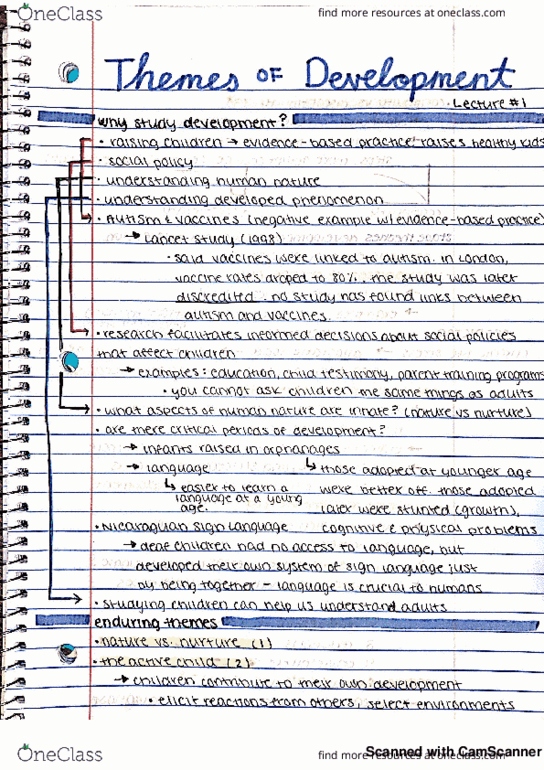 OneClass
find more resources at oneclass.com
Themes OF Development
Lecture #1
why study development?
• raising children → evidence-based practice raises healthy kids
• social policy
• understanding human nature
• understanding developed phenomenon
• Autism & vaccines (negative example w/ evidence-based practice)
→ Lancet study (1998)
• said vaccines were linked to autism. in London,
vaccine rates droped to 80%. the study was later
discredited. no study has found links between
autism and vaccines.
• research facilitates informed decisions about social policies
that affect children
→ examples: education, child testimony, parent training programs
• you cannot ask children the same things as adults
• what aspects of human nature are innate? (nature vs nurture)
• are there critical periods of development?
→ infants raised in orphanages
→ language ↳ those adopted at younger age
↳ easier to learn a were better off. those adopted
language at a young
age. later were stunted (growth),
• Nicaraguan sign language cognitive & physical problems
→ deaf children had no access to language, but
developed their own system of sign language just
by being together - language is crucial to humans
• studying children can help us understand adults
enduring themes
• nature vs. nurture (1)
• the active child (2)
→ children contribute to their own development
• elicit reactions from others, select environments
OneClass
find more resources at oneclass.com
Scanned with CamScanner